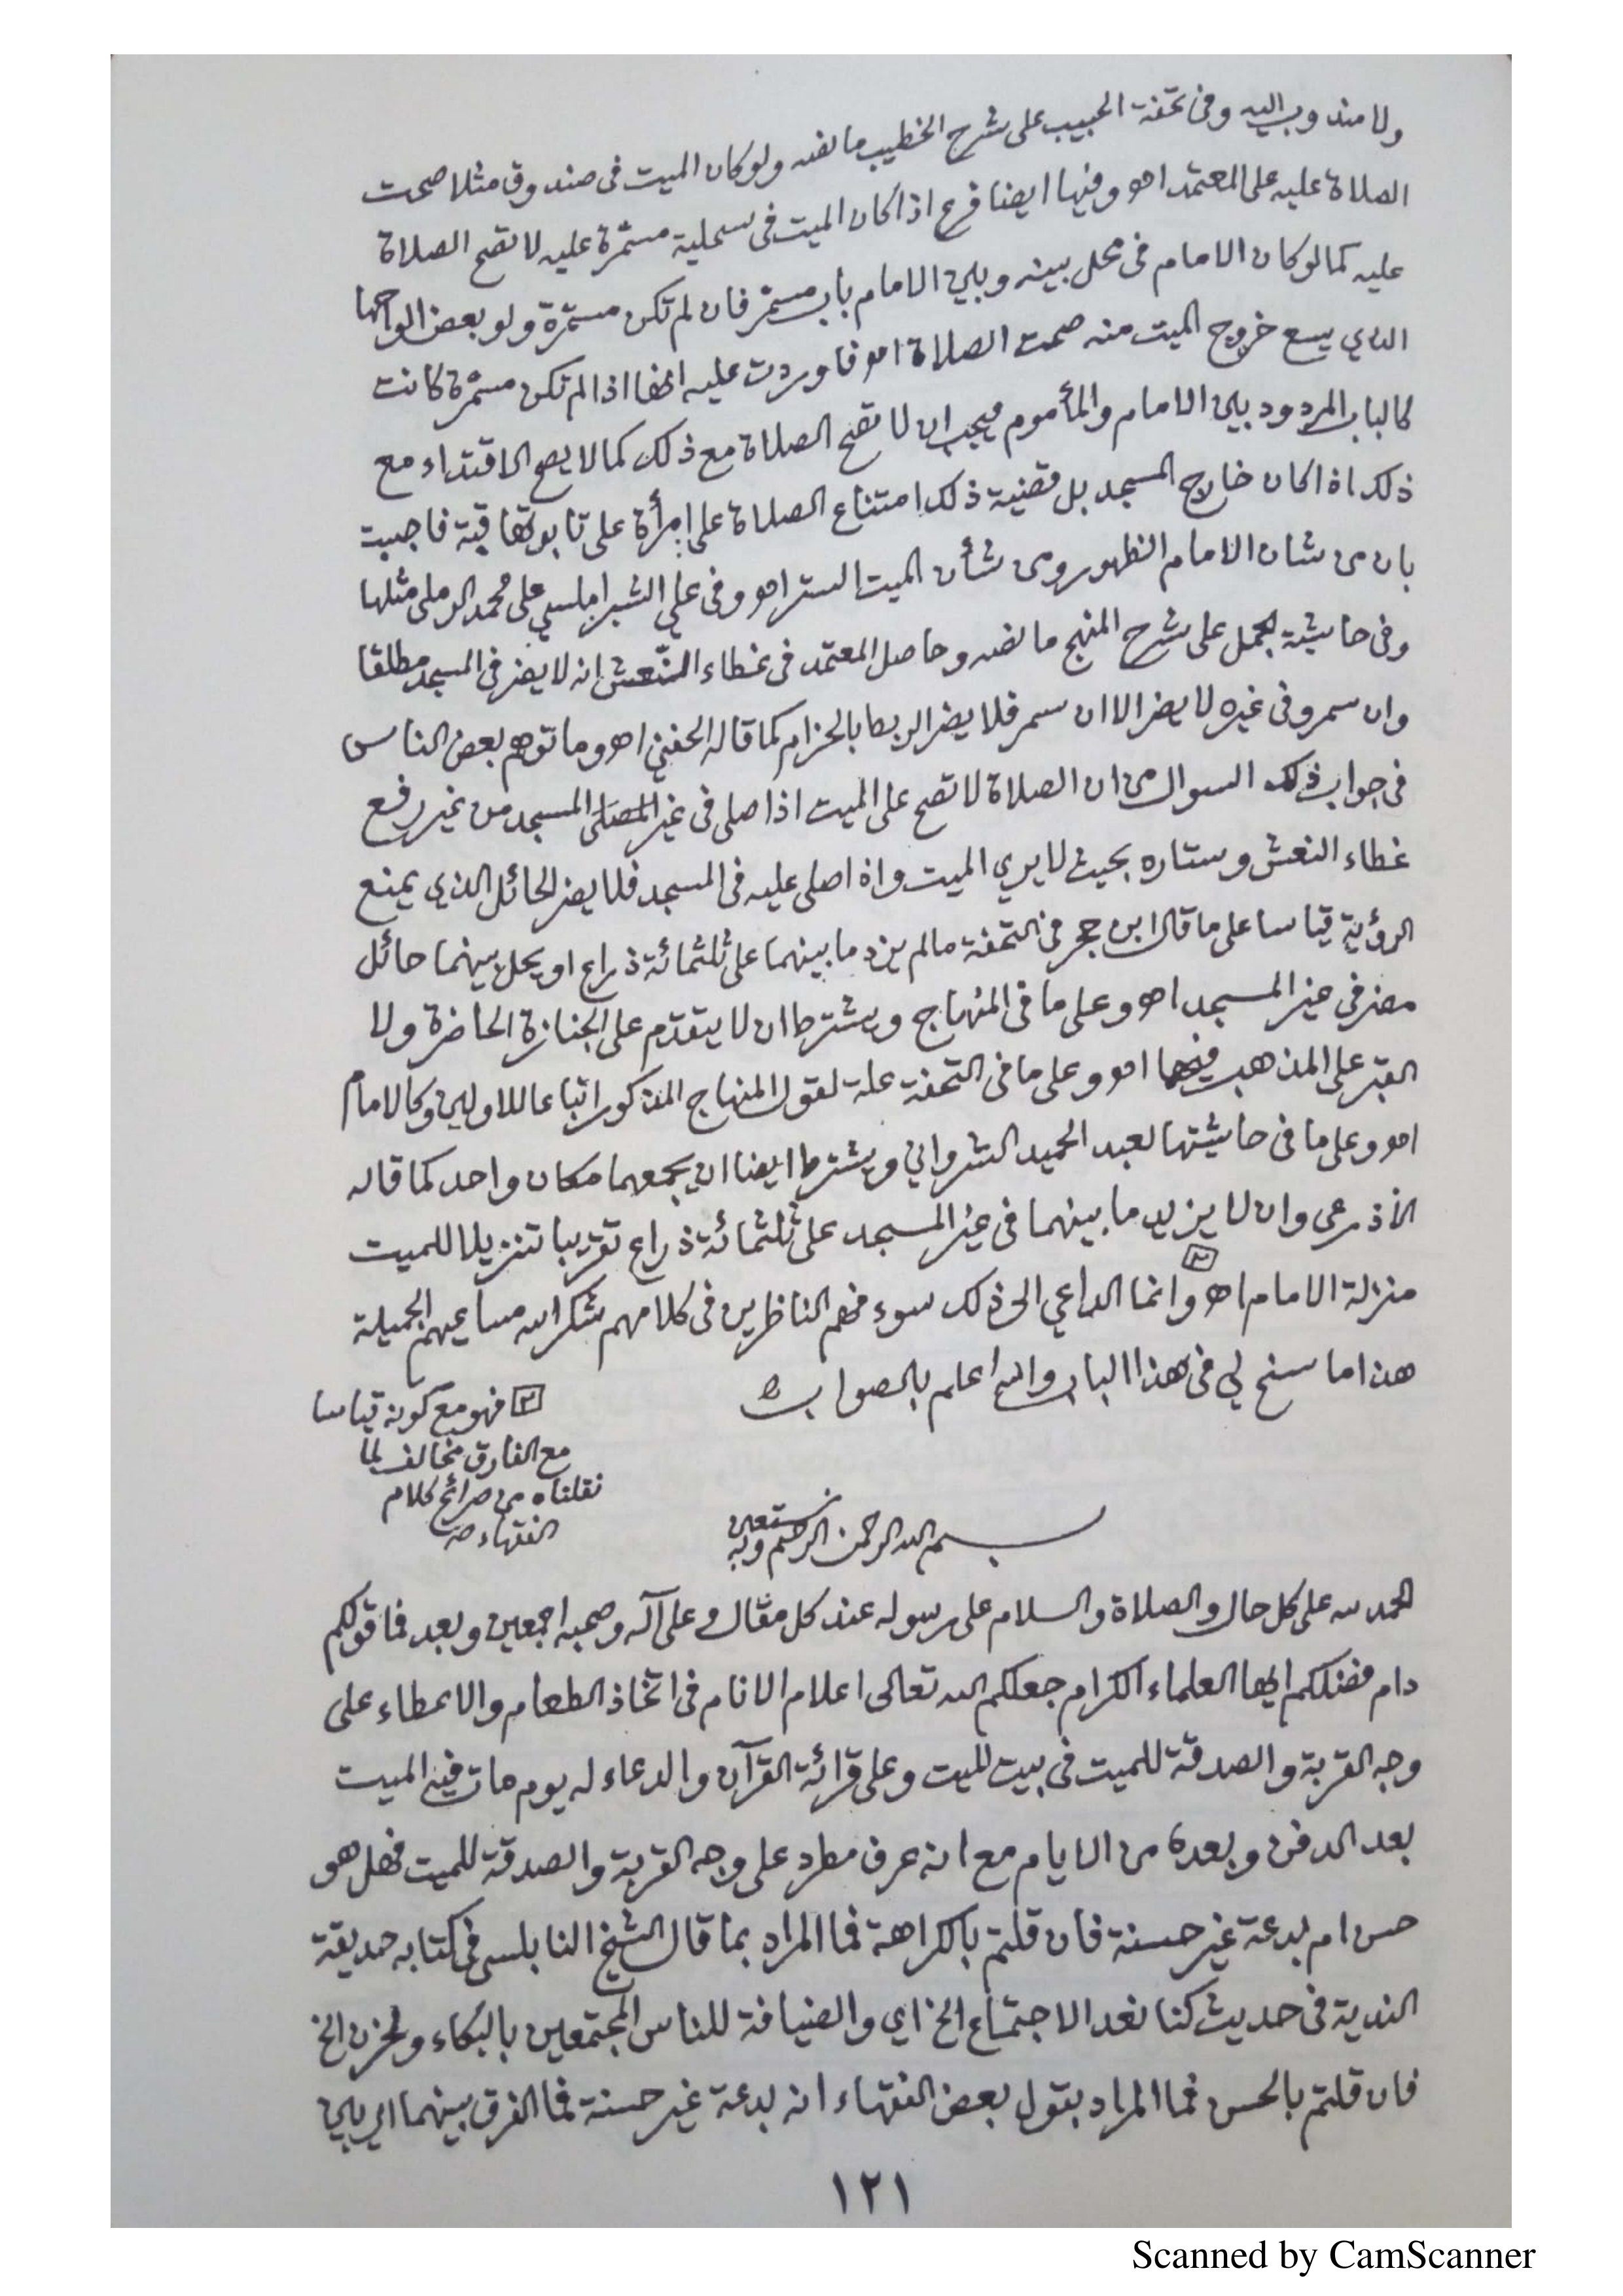 ولا مندوب اليه وفى تحفة الحبيب على شرح الخطيب ما نصه ولو كان الميت فى صندوق مثلا صحت
الصلاة عليه على المعتمد اهو وفيها ايضا فرع اذا كان الميت فى سحلية مسمّرة عليه لا تصح الصلاة
عليه كما لو كان الامام فى محل بينه وبين الامام باب مسمّر فان لم تكن مسمّرة ولو بعض الواحها
الذي يسع خروج الميت منه صحت الصلاة اهو فاوردت عليه انها اذا لم تكن مسمّرة كانت
كالباب المردود بين الامام والمأموم فيجب ان لا تصح الصلاة مع ذلك كما لا يصح الاقتداء مع
ذلك اذا كان خارج المسجد بل قضية ذلك امتناع الصلاة على امرأة على تابوتها قبة فاجيبت
بان من شان الامام الظهور ومن شأن الميت الستر اهو وفى علي الشبراملسي على محمد الرملى مثلها
وفى حاشية الجمل على شرح المنهج ما نصه وحاصل المعتمد فى غطاء النّعش انه لا يضر فى المسجد مطلقا
وان سمر وفى غيره لا يضر الا ان سمر فلا يضر الربط بالحزام كما قاله الحفني اهو وما توهم بعض الناس
فى جواب ذلك السوال من ان الصلاة لا تصح على الميت اذا صلى فى غير المسجد من غير رفع
غطاء النعش وستاره بحيث لا يرى الميت واذا صلى عليه فى المسجد فلا يضر الحائل الذي يمنع
الرؤية قياسا على ما قال ابن حجر فى التحفة ما لم يزد ما بينهما على ثلثمائة ذراع او يحل بينهما حائل
مضر في غير المسجد اهو وعلى ما فى المنهاج ويشترط ان لا يتقدم على الجنازة الحاضرة ولا
القبر على المذهب فيهما اهو وعلى ما فى التحفة علة لقول المنهاج المذكور اتباعا للاولين وكالامام
اهو وعلى ما فى حاشيتها لعبد الحميد الشرواني ويشترط ايضا ان يجمعهما مكان واحد كما قاله
الأذرعى وان لا يزيد ما بينهما فى غير المسجد على ثلثمائة ذراع تقريبا تنزيلا للميت
منزلة الامام اهو ٢ وانما الداعي الى ذلك سوء فهم الناظرين فى كلامهم شكر الله مساعيهم الجميلة
هذا ما سنح لي فى هذا الباب والله اعلم بالصواب
٢ فهو مع كونه قياسا
مع الفارق مخالف لما
نقلناه من صرائح كلام
الفقهاء
بسم الله الرحمن الرحيم وبه نستعين
الحمد لله على كل حال والصلاة والسلام على رسوله عند كل مقال وعلى آله وصحبه اجمعين وبعد فما قولكم
دام فضلكم ايها العلماء الكرام جعلكم الله تعالى اعلام الانام فى اتخاذ الطعام والاعطاء على
وجه القربة والصدقة للميت فى بيت الميت وعلى قرائة القرآن والدعاء له يوم مات فيه الميت
بعد الدفن وبعده من الايام مع انه عرف مطرد على وجه القربة والصدقة للميت فهل هو
حسن ام بدعة غير حسنة فان قلتم بالكراهة فما المراد بما قال الشيخ النابلسى فى كتابه حديقة
الندية فى حديث كنا نعد الاجتماع الخ اي والضيافة للناس المجتمعين بالبكاء والحزن الخ
فان قلتم بالحسن فما المراد بقول بعض الفقهاء انه بدعة غير حسنة فما الفرق بينهما اي بين
١٢١
Scanned by CamScanner